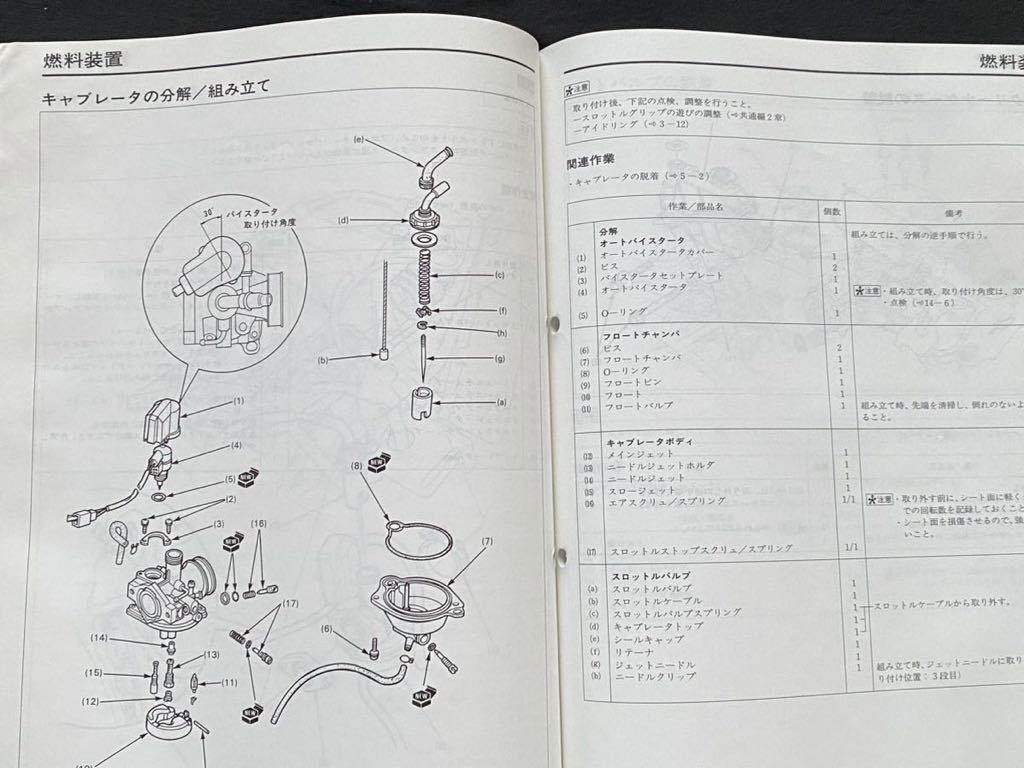 燃料装置
キャブレータの分解／組み立て
30°
バイスタータ
取り付け角度
(e)
(d)
(c)
(f)
(h)
(b)
(g)
(a)
(1)
(4)
(8)
(5)
(2)
(3)
(16)
(7)
(17)
(6)
(14)
(13)
(15)
(11)
(12)
燃料
注意
取り付け後、下記の点検、調整を行うこと。
—スロットルグリップの遊びの調整（⇨共通編２章）
—アイドリング（⇨3－12）
関連作業
・キャブレータの脱着（⇨5－2）
作業／部品名 個数 備考
分解 組み立ては、分解の逆手順で行う。
オートバイスタータ
(1) オートバイスタータカバー 1
(2) ビス 2
(3) バイスタータセットプレート 1
(4) オートバイスタータ 1 注意 ・組み立て時、取り付け角度は、30°
・点検（⇨14－6）
(5) Oーリング 1
フロートチャンバ
(6) ビス 2
(7) フロートチャンバ 1
(8) Oーリング 1
(9) フロートピン 1
(10) フロート 1
(11) フロートバルブ 1 組み立て時、先端を清掃し、倒れのないよ
ること。
キャブレータボディ
(12) メインジェット 1
(13) ニードルジェットホルダ 1
(14) ニードルジェット 1
(15) スロージェット 1
(16) エアスクリュ／スプリング 1/1 注意 ・取り外す前に、シート面に軽く
での回転数を記録しておくこと
・シート面を損傷させるので、強
いこと。
(17) スロットルストップスクリュ／スプリング 1/1
スロットルバルブ
(a) スロットルバルブ 1
(b) スロットルケーブル 1
(c) スロットルバルブスプリング 1 スロットルケーブルから取り外す。
(d) キャブレータトップ 1
(e) シールキャップ 1
(f) リテーナ 1
(g) ジェットニードル 1 組み立て時、ジェットニードルに取り
(h) ニードルクリップ 1 り付け位置：３段目）